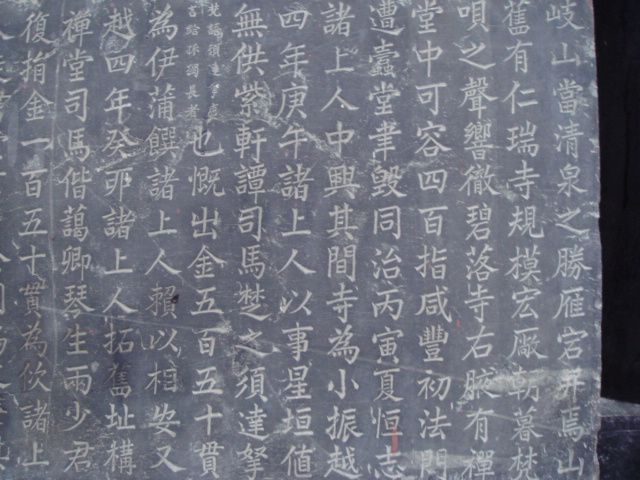 岐山當清泉之勝雁宕
舊有仁瑞寺規模宏厰朝暮梵
唄之聲響徹碧落寺右腋有禪
堂中可容四百指咸豐初法門
遭蠹堂聿毀同治丙寅夏恒志
諸上人中興其間寺為小振越
四年庚午諸上人以事星垣値
無供紫軒譚司馬楚之須達拏
也慨出金五百五十貫
為伊蒲饌諸上人賴以相安又
越四年癸夘諸上人拓舊址構
禪堂司馬偕藹卿琴生兩少君
復捐金一百五十貫為佽諸上